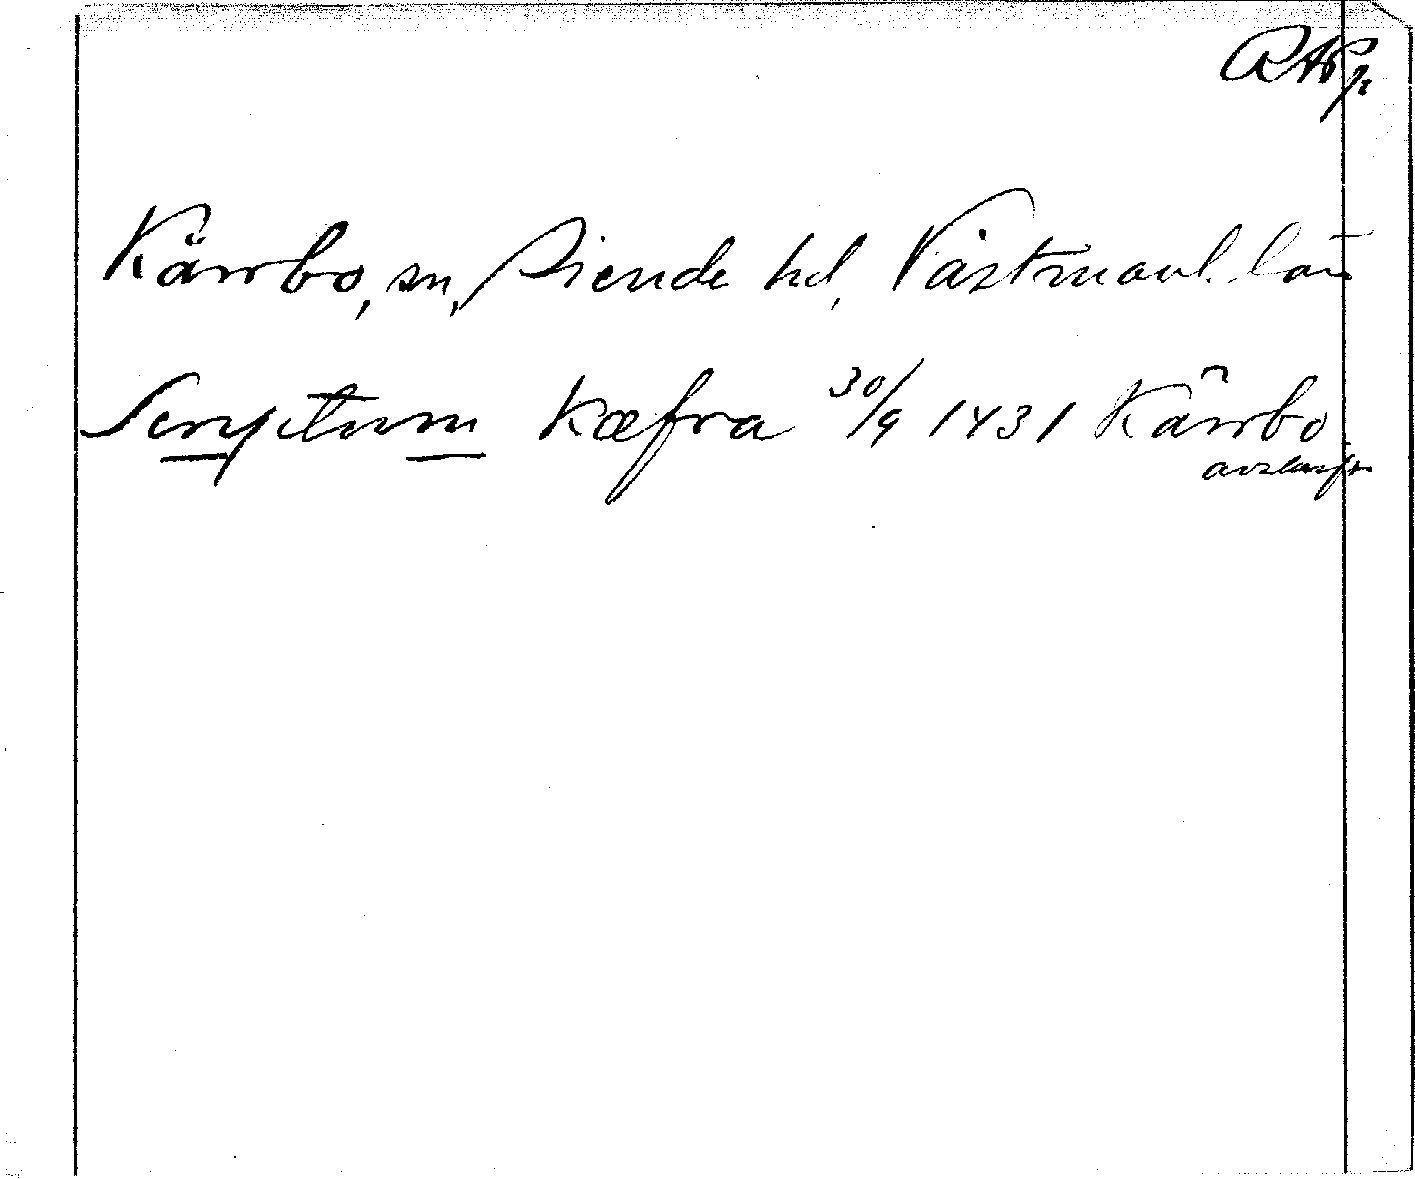 RAp
Kärrbo, sn, Siende hd, Västmanl. län
Scryptum Kæfra 30/9 1431 Kärrbo
avskrift